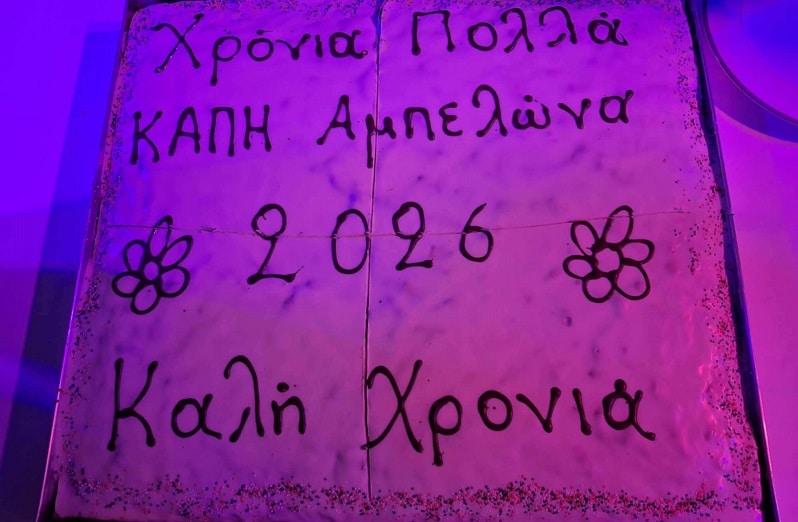 Χρόνια Πολλά
ΚΑΠΗ Αμπελώνα
2026
Καλή Χρονιά